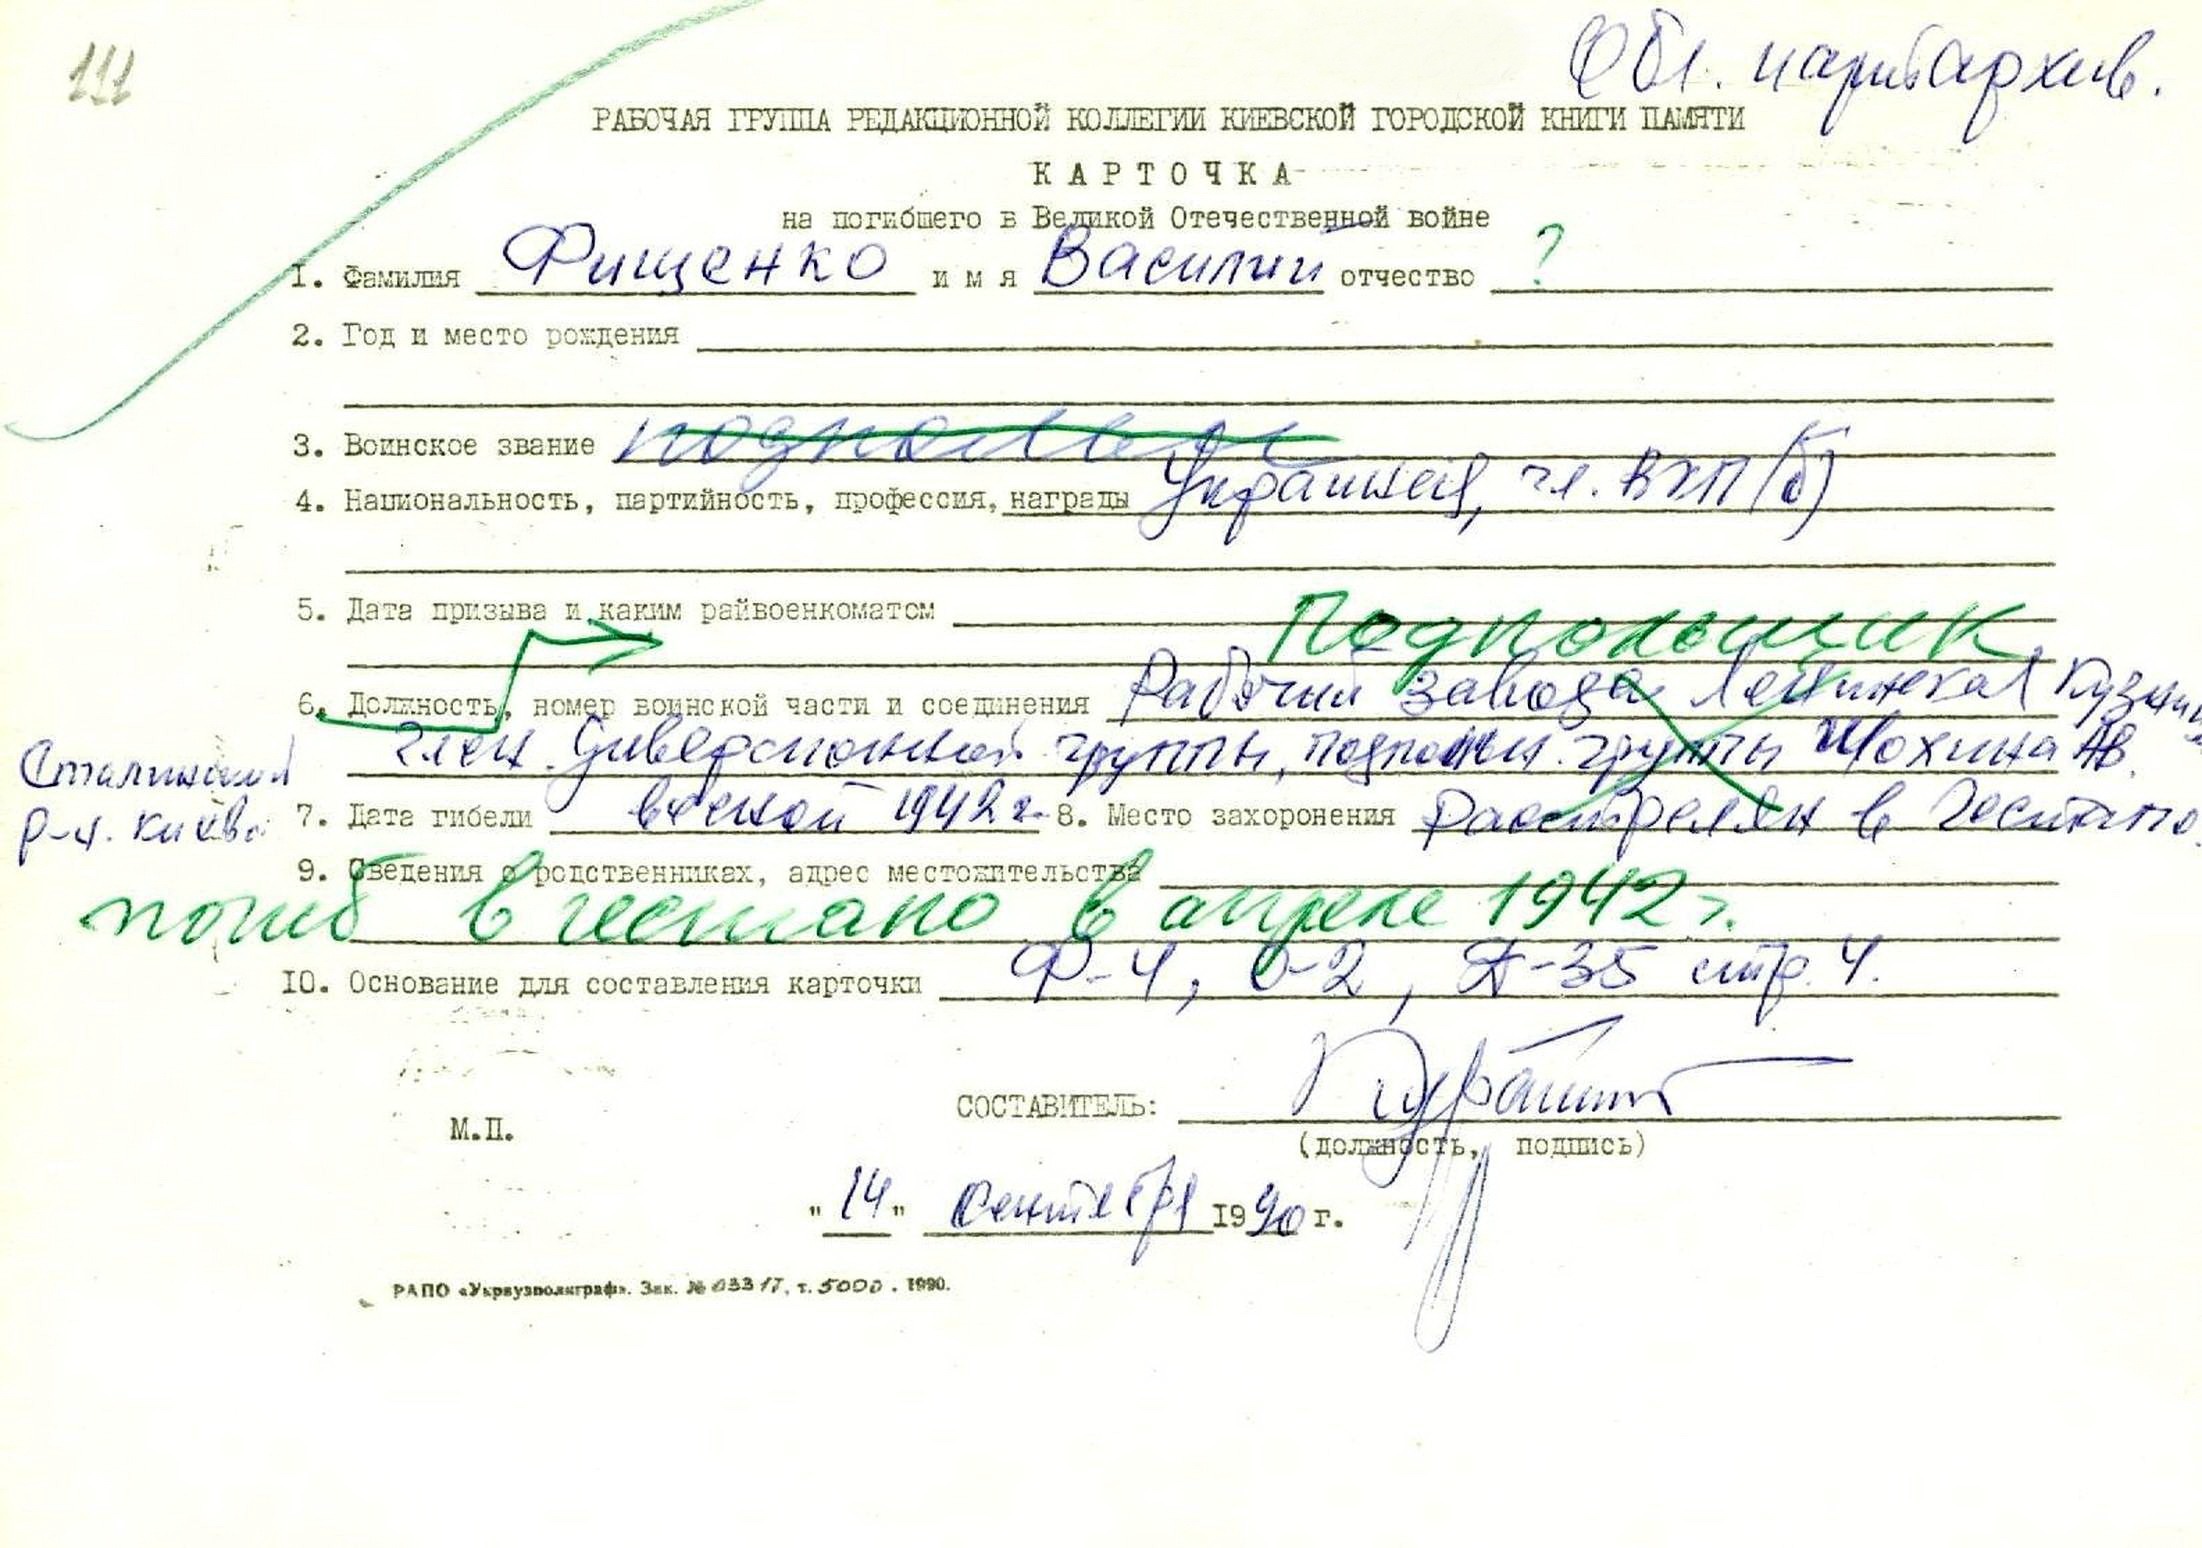 111
Обл. партархив.
РАБОЧАЯ ГРУППА РЕДАКЦИОННОЙ КОЛЛЕГИИ КИЕВСКОЙ ГОРОДСКОЙ КНИГИ ПАМЯТИ
КАРТОЧКА
на погибшего в Великой Отечественной войне
I. Фамилия Фищенко имя Василий отчество ?
2. Год и место рождения
3. Воинское звание
4. Национальность, партийность, профессия, награды Украинец, чл. ВКП(б)
5. Дата призыва и каким райвоенкоматом
Подпольщик
6. Должность, номер воинской части и соединения Рабочий завода Ленинская Кузница
член диверсионной группы, подпольн. группы Шохина АВ.
Сталинский
р-н. Киева
7. Дата гибели весной 1942 г. 8. Место захоронения Расстрелян в Гестапо.
9. Сведения о родственниках, адрес местожительства
погиб в гестапо в апреле 1942 г.
IO. Основание для составления карточки Ф-4, О-2, Д-35 стр. 4.
СОСТАВИТЕЛЬ:
М.П.
(должность, подпись)
"14" сентября 1990 г.
РАПО «Укрвузполиграф». Зак. № 03317, т. 5000. 1990.